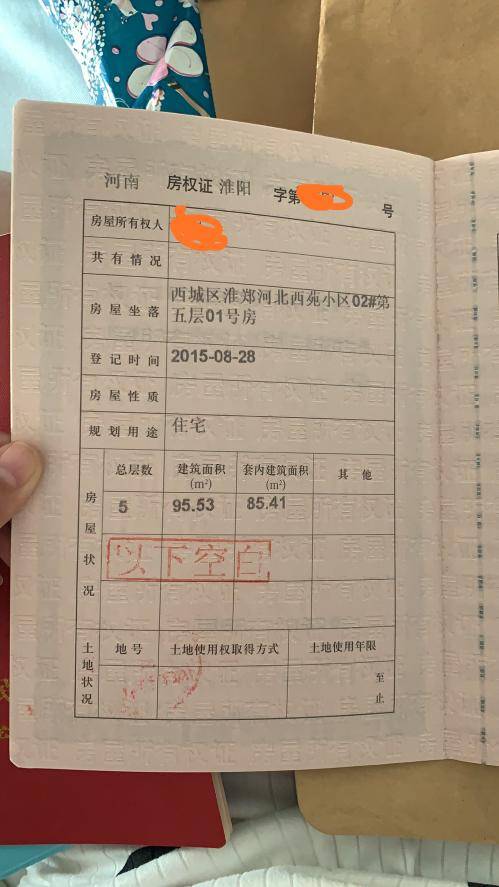 河南 房权证 淮阳 字第 号
房屋所有权人
共有情况
房屋坐落 西城区淮郑河北西苑小区02#第
五层01号房
登记时间 2015-08-28
房屋性质
规划用途 住宅
房屋状况
总层数 建筑面积 套内建筑面积 其他
(m²) (m²)
5 95.53 85.41
以下空白
土地状况
地号 土地使用权取得方式 土地使用年限
至
止